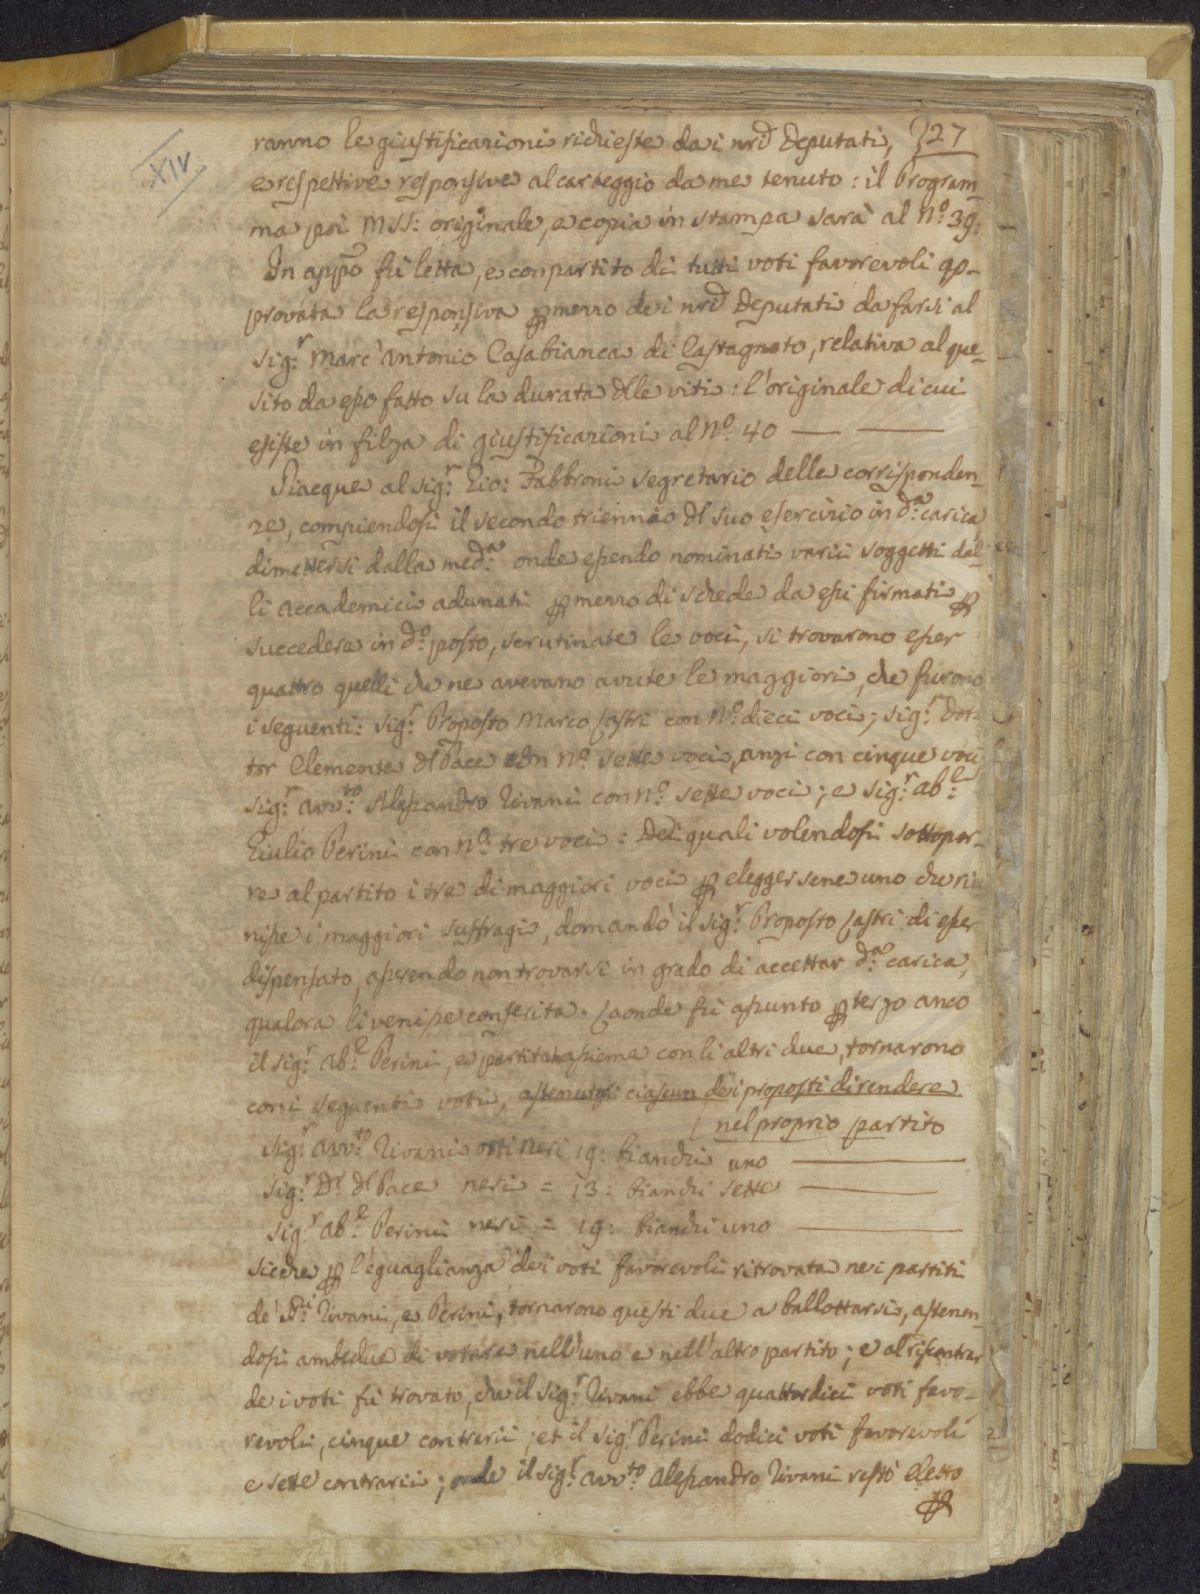 XIV
327
ranno le giustificazioni richieste dai nri Deputati,
e respettive responsive al carteggio da me tenuto: il Program-
ma poi MSS: originale, e copia in stampa sarà al N.º 39:
In appso fù letta, e con partito di tutti voti favorevoli ap-
provata la responsiva p mezzo dei nri Deputati da farsi al
Sig.r Marc'Antonio Casabianca di Castagneto, relativa al que-
sito da esso fatto su la durata dlle viti: l'originale di cui
esiste in filza di giustificazioni al N.º 40
Piacque al Sig.r Gio: Fabbroni Segretario delle corrisponden-
ze, compiendosi il secondo triennio dl suo esercizio in d.a carica
dimettersi dalla med.a onde essendo nominati varii soggetti dal-
li accademici adunati p mezzo di schede da essi firmati p
succedere in d.o posto, scrutinate le voci, si trovarono esser
quattro quelli che ne avevano avute le maggiori, che furono
i seguenti: Sig.r Proposto Marco Lastri con N.º dieci voci; Sig.r Dot-
tor Clemente dl Pace con N.º sette voci, anzi con cinque voci
Sig.r avv.to Alessandro Rivani con N.º sette voci; e Sig.r ab.e
Giulio Perini con N.º tre voci: Dei quali volendosi sottopor-
re al partito i tre di maggiori voci p eleggersene uno che riu
nisse i maggiori suffragi, domandò il Sig.r Proposto Lastri di esser
dispensato, asserendo non trovarsi in grado di accettar d.a carica,
qualora li venisse conferita. Laonde fù assunto p terzo anco
il Sig.r ab.e Perini, e assieme con li altri due, tornarono
con i seguenti voti, astenutosi ciascun dei proposti di rendere
nel proprio partito
Sig.r avv.to Rivani voti neri 19: bianchi uno
Sig.r D.r dl Pace neri = 13: bianchi sette
Sig.r ab.e Perini neri = 19: bianchi uno
Sicche p l'eguaglianza dei voti favorevoli ritrovata nei partiti
de' Sri Rivani, e Perini, tornarono questi due a ballottarsi, astenen-
dosi ambedue di votare nell'uno e nell'altro partito; e al riscontrar
dei voti fù trovato, che il Sig.r Rivani ebbe quattordici voti favo-
revoli, cinque contrarii; et il Sig.r Perini dodici voti favorevoli
e sette contrarii; onde il Sig.r avv.to Alessandro Rivani restò eletto
p